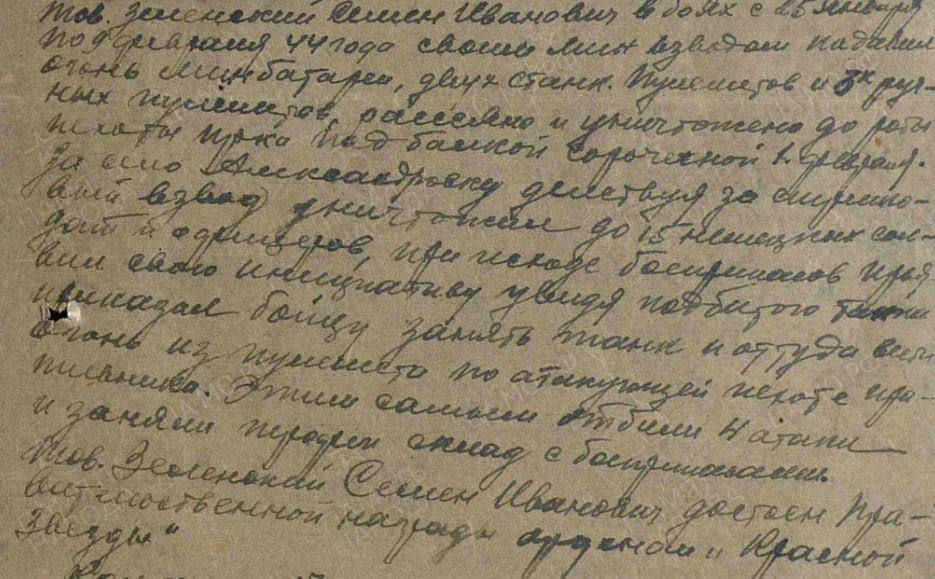 тов. Зеленский Семен Иванович в боях с 25 января
по 9 февраля 44 года своим мин взводом подавил
огонь минбатареи, двух станк. пулеметов и 5к руч-
ных пулеметов, рассеяно и уничтожено до роты
пехоты пр-ка под балкой Сорочечной 2 февраля.
За село Александровку действуя за стрелко-
вый взвод уничтожил до 15 немецких сол-
дат и офицеров, при исходе боеприпасов проя
вил свою инициативу увидя подбитого танка
приказал бойцу занять танк и оттуда вести
огонь из пулемета по атакующей пехоте про-
тивника. Этим самым отбили 4 атаки
и заняли трофеи склад с боеприпасами.
Тов. Зеленский Семен Иванович достоен пра-
вительственной награды орденом „Красной
Звезды"